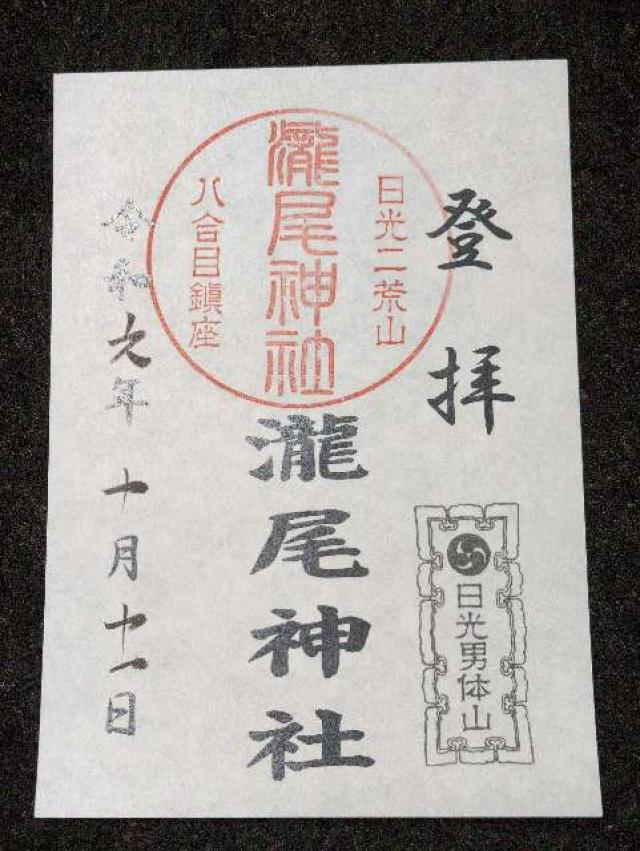 登拝
日光男体山
日光二荒山
瀧尾神社
八合目鎮座
瀧尾神社
令和元年十月十一日